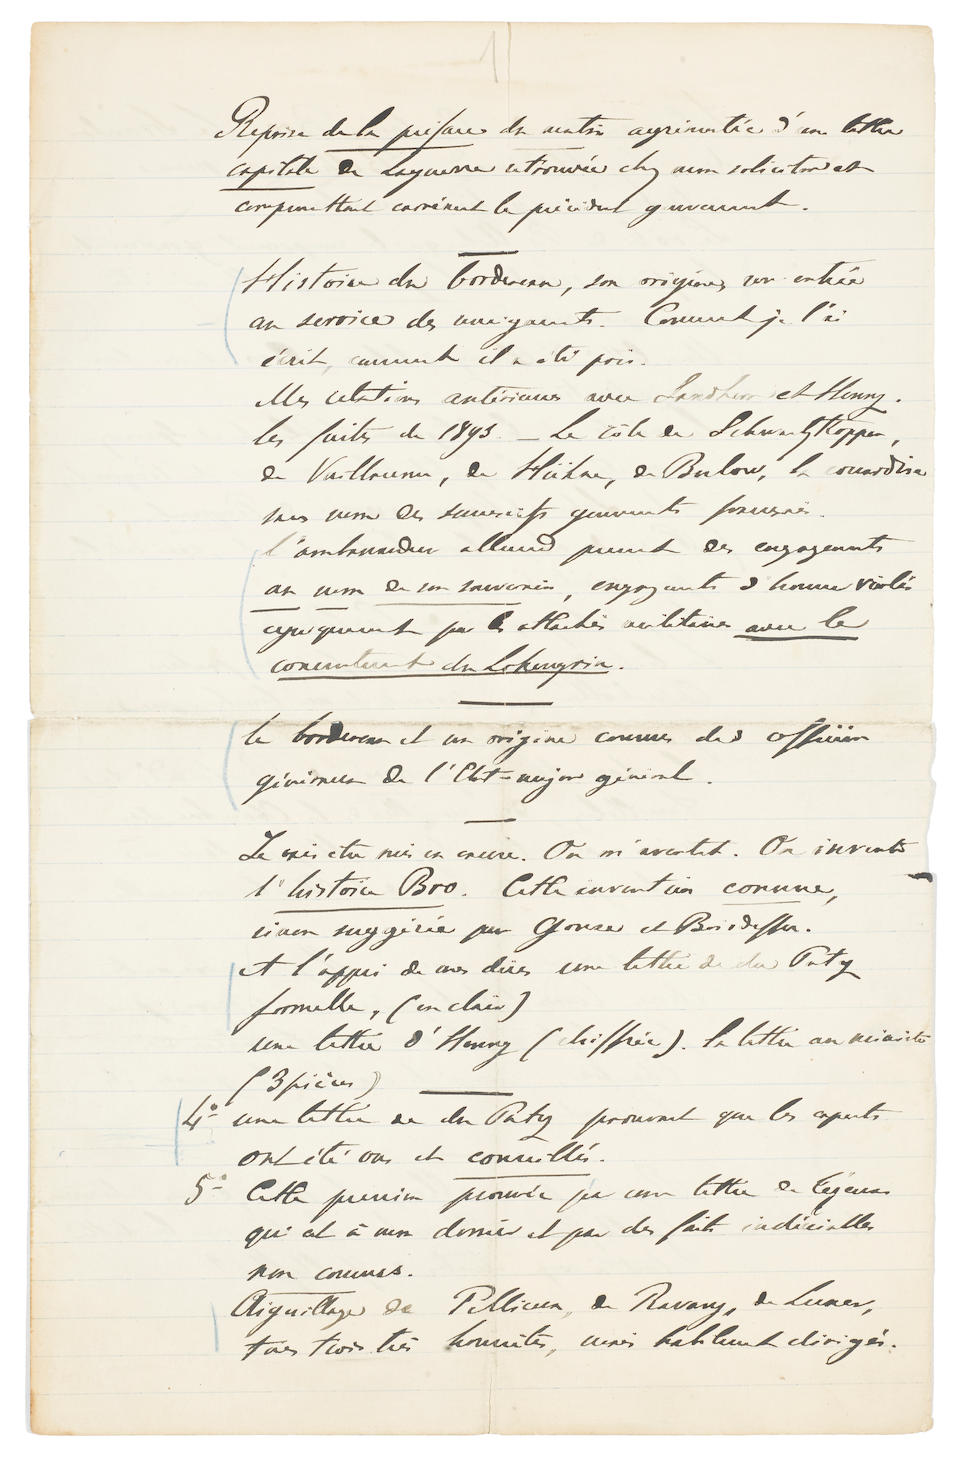 Reprise de la préface du matin agrémentée d'une lettre
capitale de Laguerre retrouvée chez mon solicitor et
compromettant carrément le précédent gouvernement.
Histoire du bordereau, son origine, son entrée
au service des renseignements. Comment je l'ai
écrit, comment il a été pris.
Mes relations antérieures avec Sandherr et Henry.
Les faits de 1893. – Le rôle de Schwartzkoppen,
de Vuillaume, de Hühne, de Bulow, la couardise
sans nom des gouvernements français.
L'ambassadeur allemand prenant des engagements
au nom de son souverain, engagements d'honneur violés
cyniquement par les attachés militaires avec le
consentement du Lohengrin.
Le bordereau et son origine connus des officiers
généraux de l'Etat-major général.
Je vais être mis en cause. On m'avertit. On invente
l'histoire Bro. Cette invention connue,
sinon suggérée par Gonse et Boisdeffre.
A l'appui de mes dires une lettre de du Paty
formelle, (en clair)
une lettre d'Henry (chiffrée). La lettre au ministre
(3 pièces)
4° une lettre de du Paty prouvant que les experts
ont été vus et conseillés.
5° Cette pression prouvée par une lettre de Tézenas
qui est à mon dossier et par des faits indéniables
non connus.
Aiguillage de Pellieux, de Ravary, de Luxer,
tous trois très honnêtes, mais habilement dirigés.